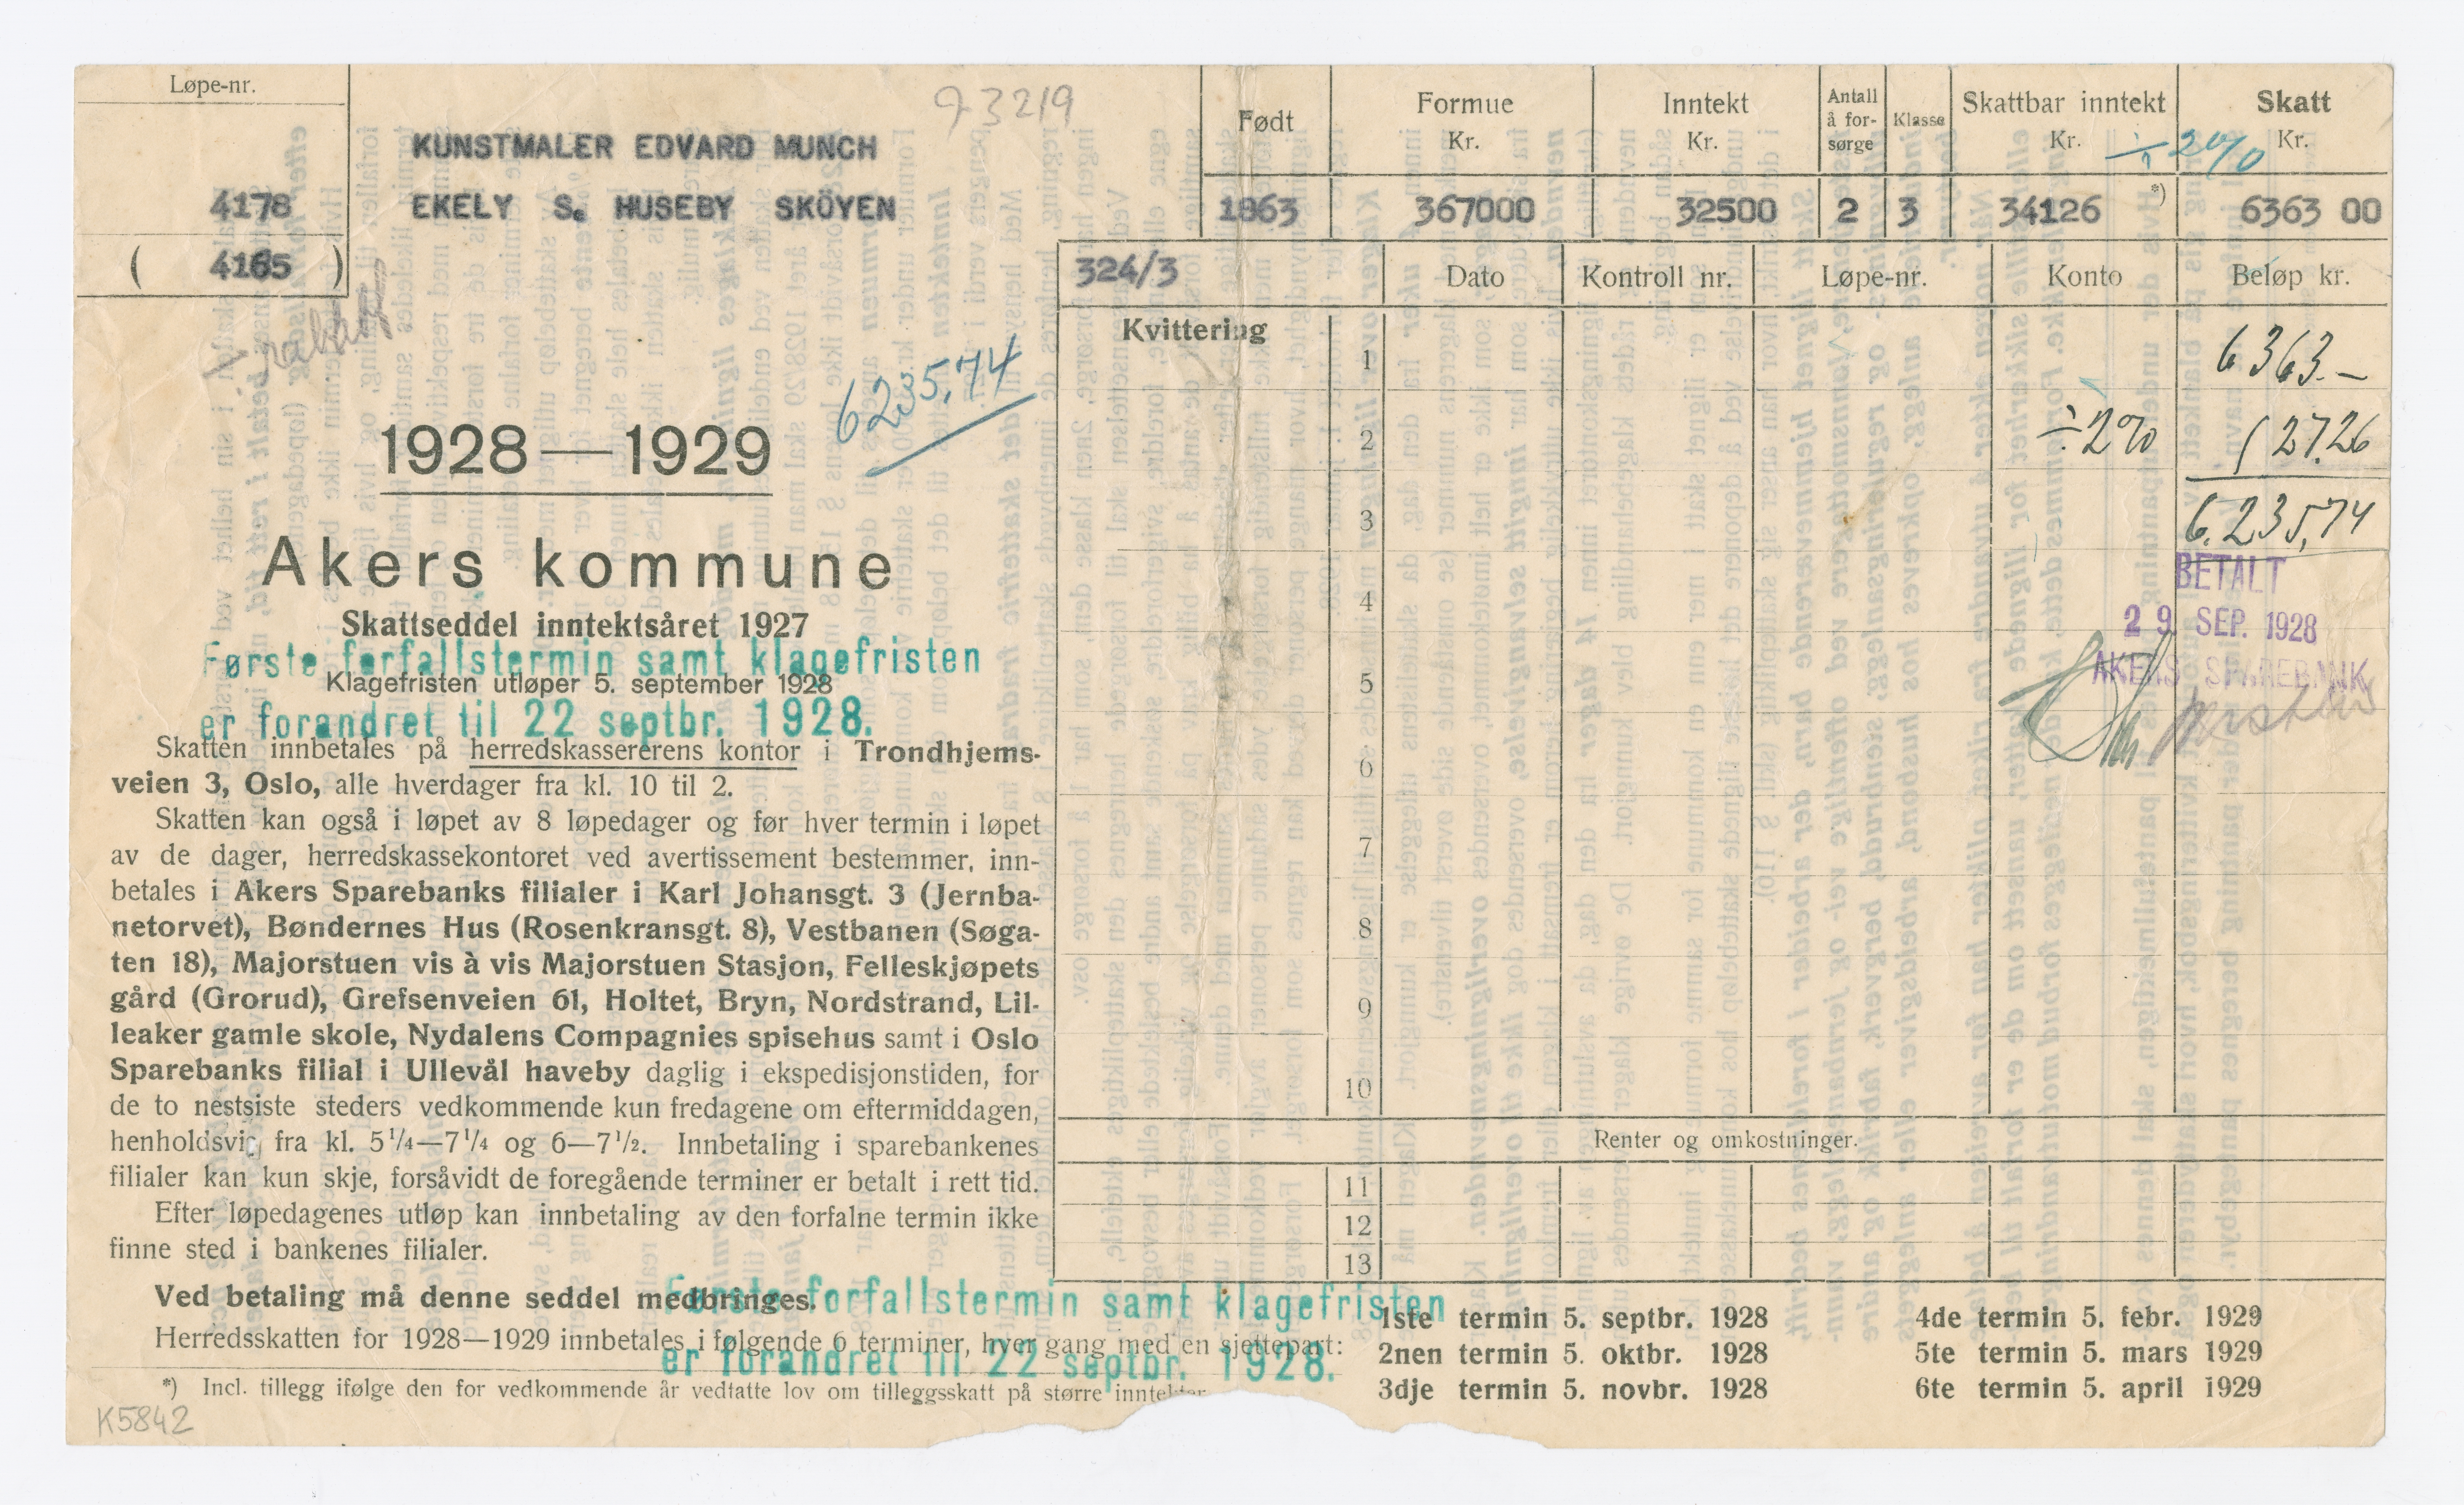 Løpe-nr.
4178
( 4165 )
KUNSTMALER EDVARD MUNCH
EKELY S. HUSEBY SKÖYEN
Født
Formue
Kr.
Inntekt
Kr.
Antall
å for-
sørge
Klasse
Skattbar inntekt
Kr.
÷ 2%
Skatt
Kr.
1863 367000 32500 2 3 34126 *) 6363 00
324/3
Dato Kontroll nr. Løpe-nr. Konto Beløp kr.
Kvittering
1 6363.—
2 ÷2% 127.26
3 6.235,74
4
5
6
7
8
9
10
BETALT
29 SEP. 1928
AKERS SPAREBANK
Renter og omkostninger.
11
12
13
6235,74
1928—1929
Akers kommune
Skattseddel inntektsåret 1927
Første forfallstermin samt klagefristen
Klagefristen utløper 5. september 1928
er forandret til 22 septbr. 1928.
Skatten innbetales på herredskassererens kontor i Trondhjems-
veien 3, Oslo, alle hverdager fra kl. 10 til 2.
Skatten kan også i løpet av 8 løpedager og før hver termin i løpet
av de dager, herredskassekontoret ved avertissement bestemmer, inn-
betales i Akers Sparebanks filialer i Karl Johansgt. 3 (Jernba-
netorvet), Bøndernes Hus (Rosenkransgt. 8), Vestbanen (Søga-
ten 18), Majorstuen vis à vis Majorstuen Stasjon, Felleskjøpets
gård (Grorud), Grefsenveien 61, Holtet, Bryn, Nordstrand, Lil-
leaker gamle skole, Nydalens Compagnies spisehus samt i Oslo
Sparebanks filial i Ullevål haveby daglig i ekspedisjonstiden, for
de to nestsiste steders vedkommende kun fredagene om eftermiddagen,
henholdsvis fra kl. 5¼—7¼ og 6—7½. Innbetaling i sparebankenes
filialer kan kun skje, forsåvidt de foregående terminer er betalt i rett tid.
Efter løpedagenes utløp kan innbetaling av den forfalne termin ikke
finne sted i bankenes filialer.
Ved betaling må denne seddel medbringes.
Første forfallstermin samt klagefristen
Herredsskatten for 1928—1929 innbetales i følgende 6 terminer, hver gang med en sjettepart:
er forandret til 22 septbr. 1928.
1ste termin 5. septbr. 1928
2nen termin 5. oktbr. 1928
3dje termin 5. novbr. 1928
4de termin 5. febr. 1929
5te termin 5. mars 1929
6te termin 5. april 1929
*) Incl. tillegg ifølge den for vedkommende år vedtatte lov om tilleggsskatt på større inntekter
K5842